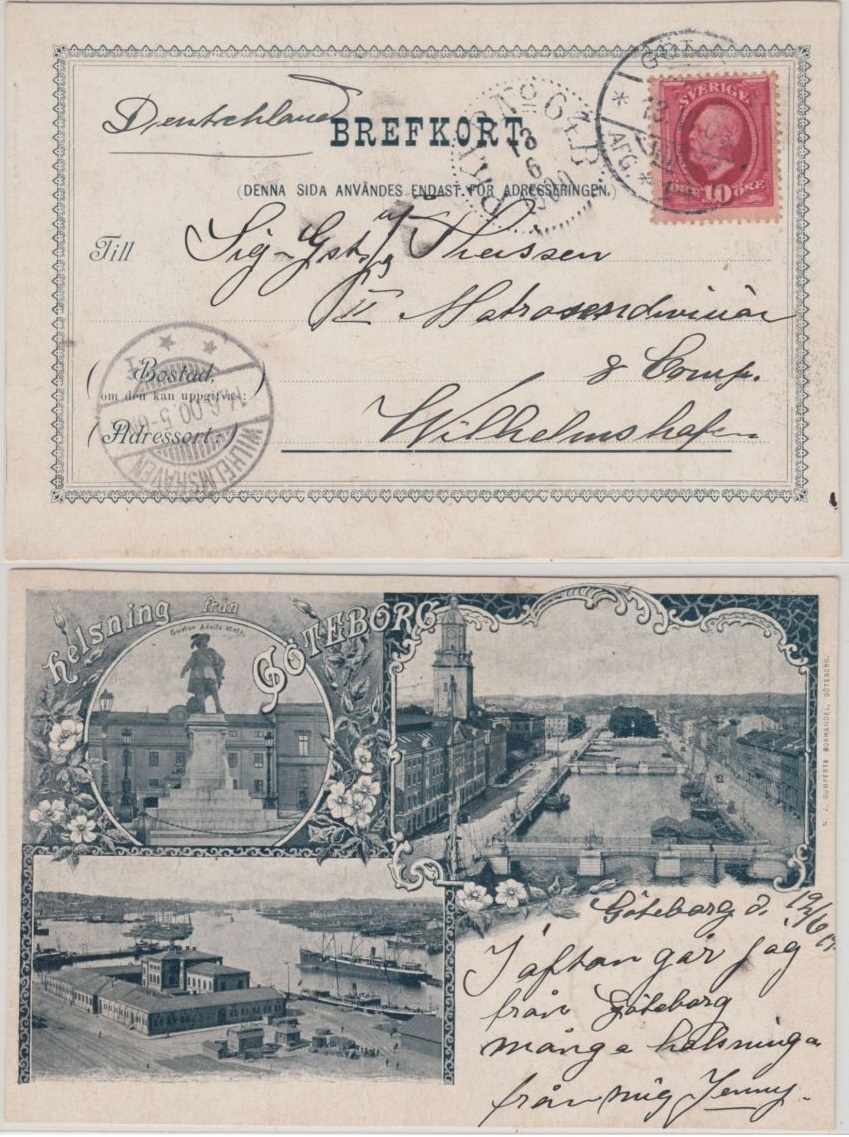 Deutchland
BREFKORT
(DENNA SIDA ANVÄNDES ENDAST FÖR ADRESSERINGEN.)
SVERIGE
ÖRE 10 ÖRE
PKXP No 64 B
13
6
1900
13
AFG.
Till
Sig-Gst.
II Matrosendivision
8 Comp.
Wilhelmshafen
Bostad,
(om den kan uppgifvas:)
(Adressort:)
WILHELMSHAVEN
14.6.00.5-6N
Helsning från
GÖTEBORG
Gustav Adolfs staty.
N. J. GUMPERTS BOKHANDEL, GÖTEBORG.
Göteborg d.
I afton går jag
från Göteborg
många hälsninga
från mig Jenny.